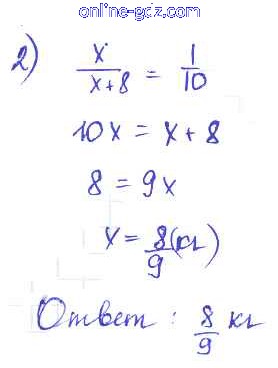 online-gdz.com
2) x/(x+8) = 1/10
10x = x + 8
8 = 9x
x = 8/9 (кг)
Ответ: 8/9 кг